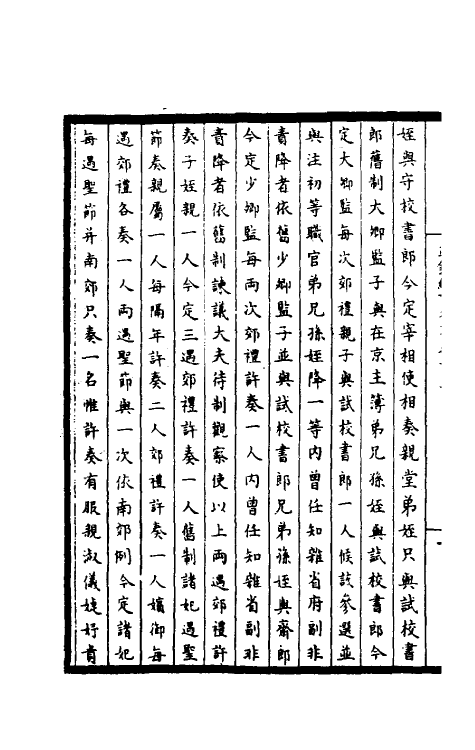 姪與守校書郎今定宰相使相奏親堂弟姪只與試校書
郎舊制大卿監子與在京主簿弟兄孫姪與試校書郎今
定大卿監每次郊禮親子與試校書郎一人候該參選並
與注初等職官弟兄孫姪降一等內曾任知雜省府副非
責降者依舊少卿監子並與試校書郎兄弟孫姪與齋郎
今定少卿監每兩次郊禮許奏一人內曾任知雜省副非
責降者依舊制諫議大夫待制觀察使以上兩遇郊禮許
奏子姪親一人今定三遇郊禮許奏一人舊制諸妃遇聖
節奏親屬一人每隔年許奏二人郊禮許奏一人嬪御每
遇郊禮各奏一人兩遇聖節與一次依南郊例今定諸妃
每遇聖節并南郊只奏一名惟許奏有服親淑儀婕妤貴